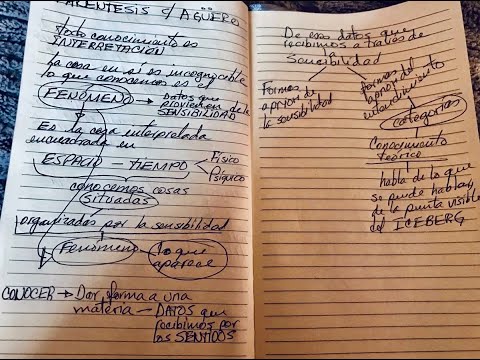 PARENTESIS c/ AGÜERO
todo conocimiento es
INTERPRETACIÓN
la cosa en sí es incognoscible
lo que conocemos es el
FENÓMENO → DATOS que
provienen de la
SENSIBILIDAD
Es la cosa interpretada
encuadrada en
ESPACIO - TIEMPO
Físico
Psíquico
conocemos cosas
SITUADAS
organizadas por la sensibilidad
Fenómeno lo que
aparece
CONOCER → Dar forma a una
materia — DATOS que
recibimos por
los SENTIDOS
De esos datos que
recibimos a través de
la
Sensibilidad
Formas
a priori de
la sensibilidad
Formas
a priori del
entendimiento
categorías
Conocimiento
teórico
habla de lo que
se puede hablar,
de la punta visible
del ICEBERG